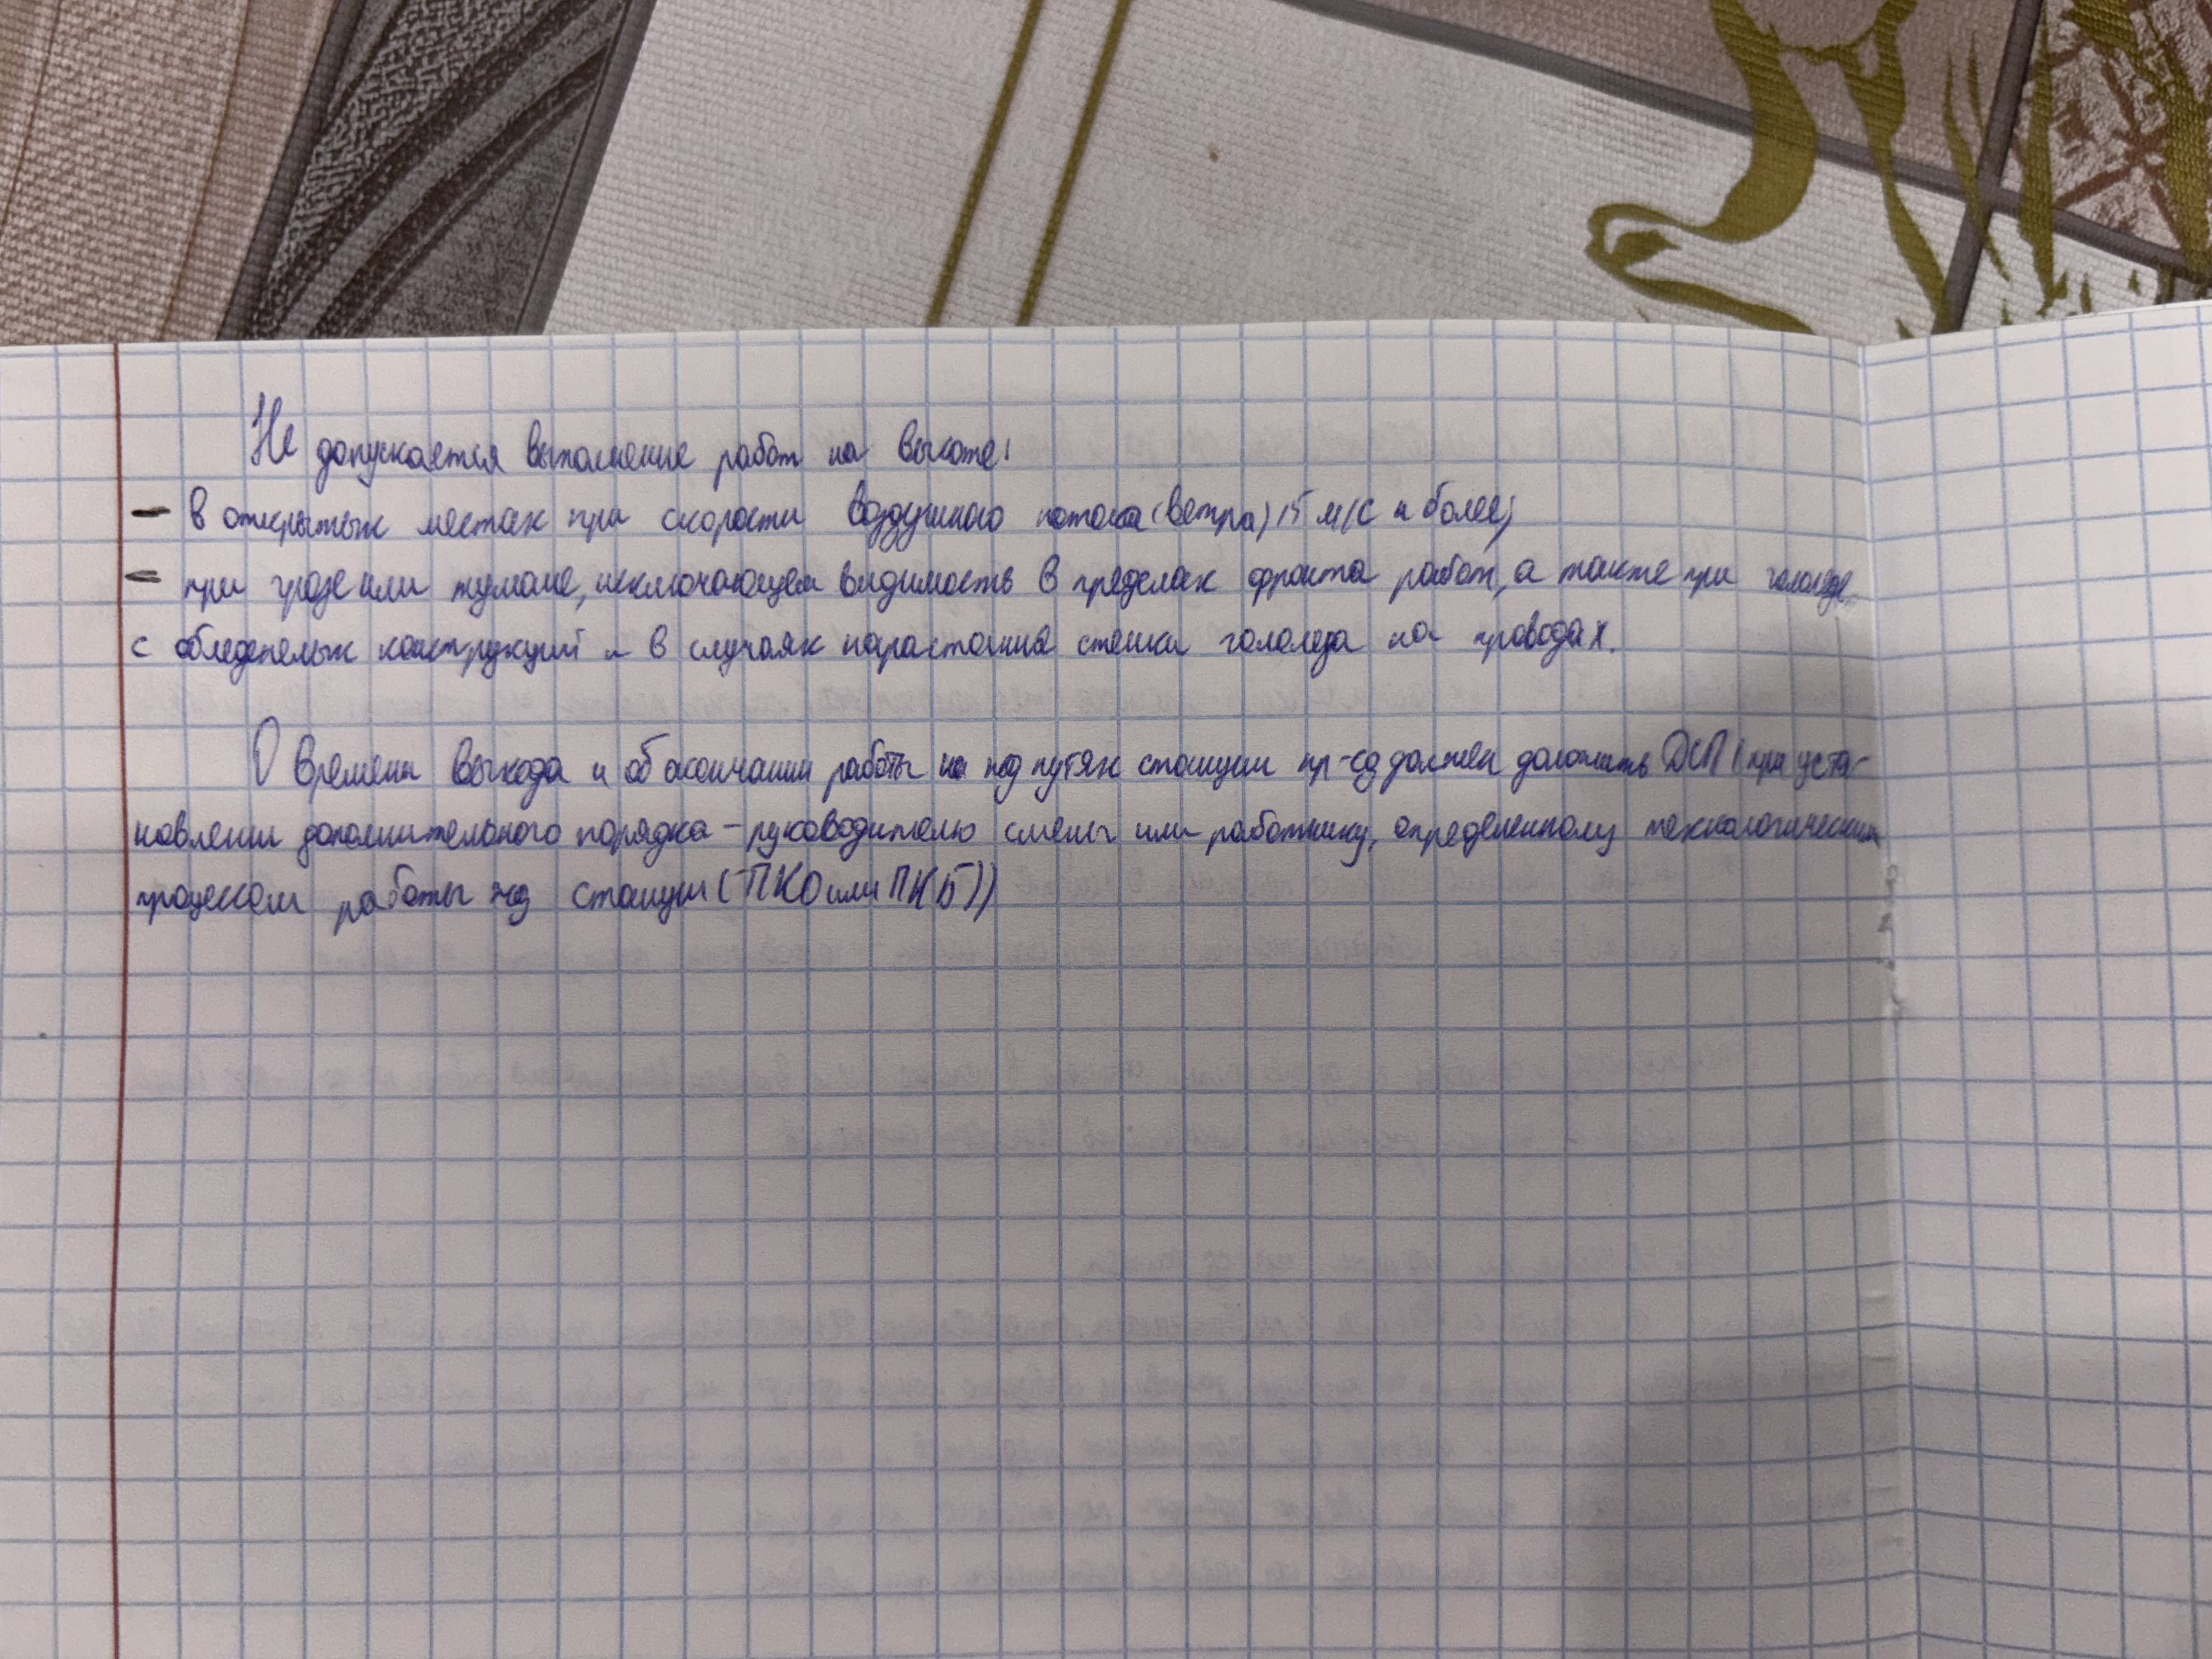 Не допускается выполнение работ на высоте:
- в открытых местах при скорости воздушного потока (ветра) 15 м/с и более;
- при грозе или тумане, исключающем видимость в пределах фронта работ, а также при гололеде
с обледенелых конструкций и в случаях нарастания стенки гололеда на проводах.
О времени выхода и об окончании работы на жд путях станции пр-ль должен доложить ДСП (при уста-
новлении дополнительного порядка - руководителю смены или работнику, определенному технологическим
процессом работы жд станции (ПКО или ПКБ))